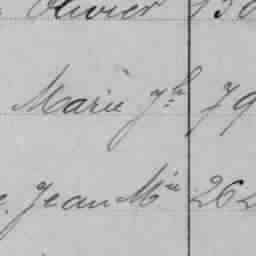 Olivier 130
Marie Jh 79
Jean Min 262